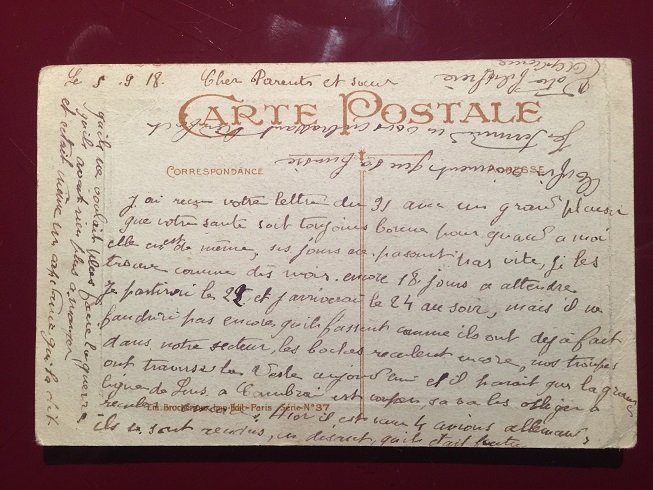 Le 5.9.18. Cher Parents et sœur
CARTE POSTALE
CORRESPONDANCE
ADRESSE
J ai reçu votre lettre du 31 avec un grand plaisir
que votre santé soit toujours bonne pour quand a moi
elle est de même, ses jours ne pasont pas vite, je les
trouve comme des mois. encore 18 jours a attendre
Je partirai le 22 et j arriverai le 24 au soir, mais il ne
faudrai pas encore qu'ils fassent comme ils ont déjà fait
dans notre secteur, les boches reculent encore, nos troupes
ont traversé la Vesle aujourd'hui et il parait que la grande
ligne de a Cambrai est coupée, sa va les obliger a
reculer Hier il est venu 4 avions allemands
ils se sont rendus, en disant qu'ils était
Ed. Paris - Série N° 37
qu'ils ne voulait plus faire la guerre
qu'ils avait rien plus a manger
et cétait même un qui la dit
Je termine en vous embrassant